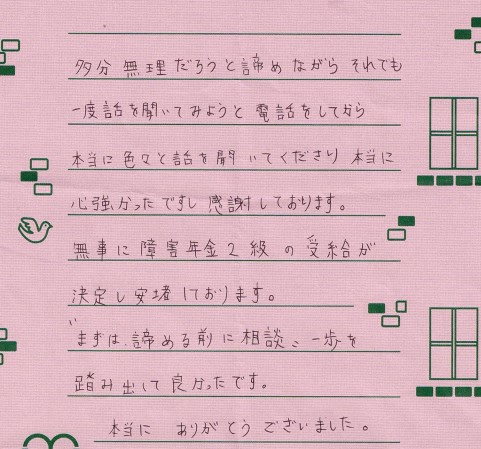 多分 無理だろうと諦めながら それでも
一度話を聞いてみようと 電話をしてから
本当に色々と話を聞いてくださり 本当に
心強かったですし 感謝しております。
無事に 障害年金2級の受給が
決定し安堵しております。
"まずは、諦める前に相談"一歩を
踏み出して良かったです。
本当に ありがとうございました。